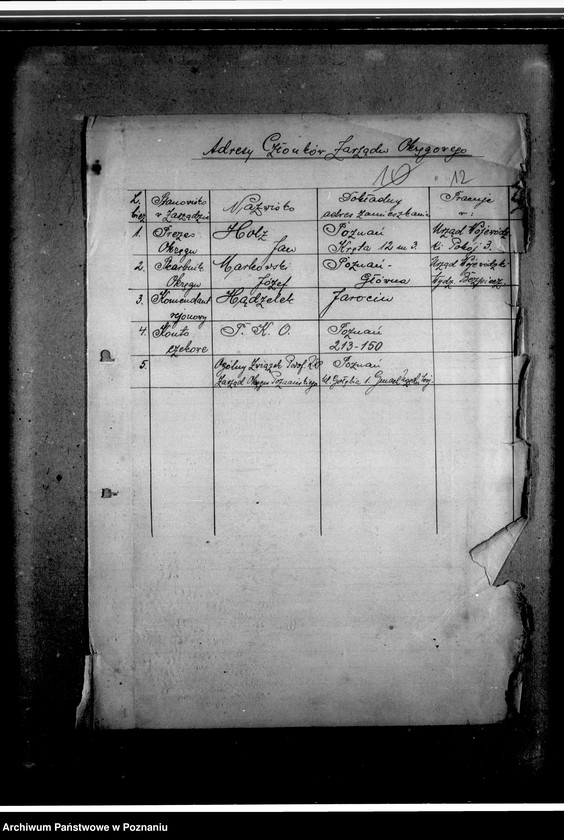 Adresy Członków Zarządu Okręgowego
10 12
L. bież.
Stanowisko w Zarządzie
Nazwisko
Dokładny adres zamieszkania
Pracuje w:
1. Prezes Okręgu
Holz Jan
Poznań Kręta 12 m 3.
Urząd Wojewódzki Pokój 3.
2. Skarbnik Okręgu
Markowski Józef
Poznań-Główna
Urząd Wojewódzki
3. Komendant rejonowy
Hądzelek
Jarocin
4. Konto czekowe
P. K. O.
Poznań 213-150
5.
Ogólny Związek Podof. Rez.
Zarząd Okręgu Poznańskiego
Poznań
ul Gołębia 1.
Archiwum Państwowe w Poznaniu